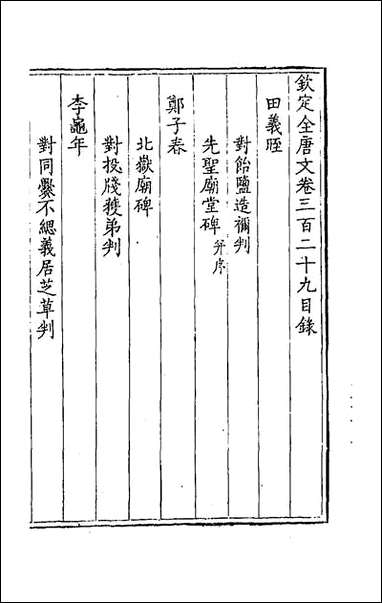 欽定全唐文卷三百二十九目錄
田義晊
對飴鹽造禰判
先聖廟堂碑并序
鄭子春
北嶽廟碑
對投牋獲弟判
李龜年
對同爨不緦義居芝草判